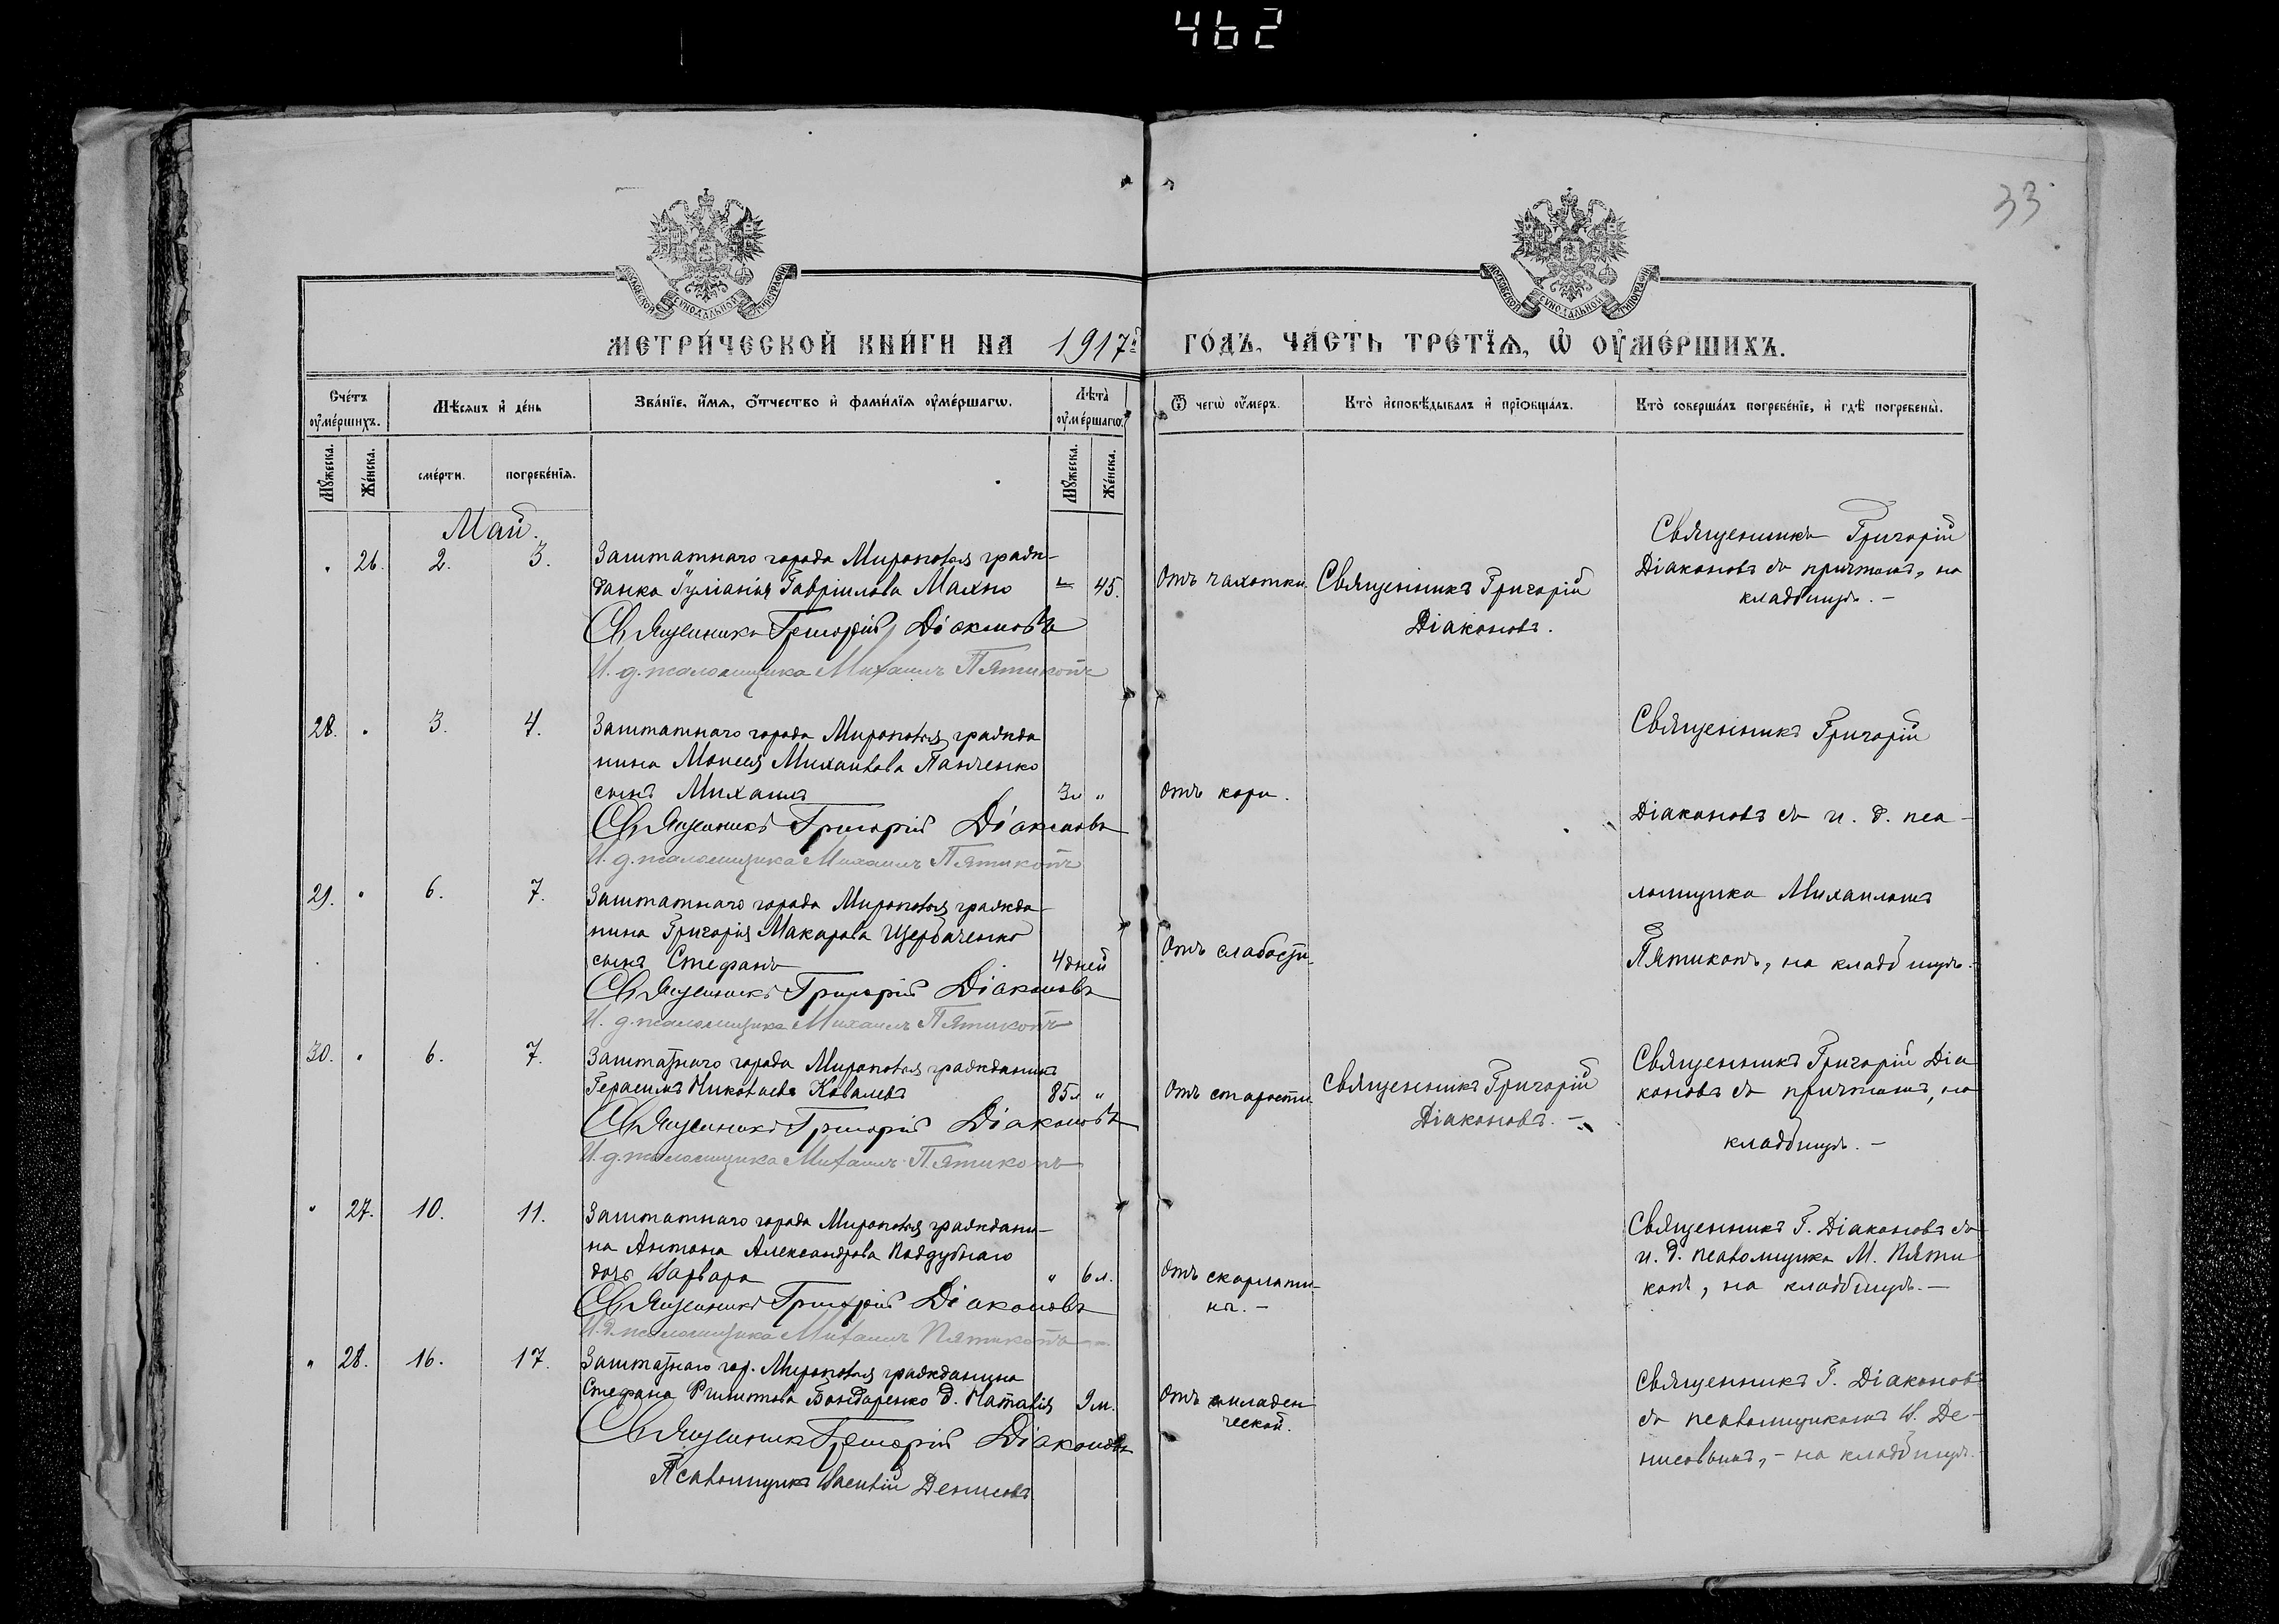 462
33
МОСКОВСКОЙ СѴНОДАЛЬНОЙ ТИПОГРАФІИ
МОСКОВСКОЙ СѴНОДАЛЬНОЙ ТИПОГРАФІИ
МЕТРИ́ЧЕСКОЙ КНИ́ГИ НА 1917й ГО́ДЪ, ЧА́СТЬ ТРЕ́ТІѦ, Ѽ ОУ҆МЕ́РШИХЪ.
Сче́тъ оу҆ме́ршихъ.
Мѣ́сяцъ и҆ де́нь
Зва́нїе, и҆́мѧ, ѻ҆́тчество и҆ фами́лїѧ оу҆ме́ршагѡ.
Лѣта̀ оу҆ме́ршагѡ.
Ѿ чегѡ̀ оу҆́меръ.
Кто̀ и҆сповѣ́дывалъ и҆ прїѡбща́лъ.
Кто̀ соверша́лъ погребе́нїе, и҆ гдѣ̀ погребены̀.
Мꙋ́жеска.
Же́нска.
сме́рти.
погребе́нїѧ.
Мꙋ́жеска.
Же́нска.
Май.
" 26. 2. 3. Заштатнаго города Мирополья граж-
данка Іуліанія Гавріилова Махно " 45.
Священникъ Григорій Діаконовъ
И. д. псаломщика Михаилъ Пятикопъ
Отъ чахотки.
Священникъ Григорій
Діаконовъ.
Священникъ Григорій
Діаконовъ съ причтомъ, на
кладбищѣ. –
28. " 3. 4. Заштатнаго города Мирополья гражда
нина Моисея Михаилова Панченко
сынъ Михаилъ 3л "
Священникъ Григорій Діаконовъ
И. д. псаломщика Михаилъ Пятикопъ
Отъ кори.
Священникъ Григорій
Діаконовъ съ и. д. пса-
ломщика Михаиломъ
Пятикопъ, на кладбищѣ.
29. " 6. 7. Заштатнаго города Мирополья гражда-
нина Григорія Макарова Щербаченко
сынъ Стефанъ 4 дней
Священникъ Григорій Діаконовъ
И. д. псаломщика Михаилъ Пятикопъ
Отъ слабости.
30. " 6. 7. Заштатнаго города Мирополья гражданинъ
Герасимъ Николаевъ Ковалевъ 85л "
Священникъ Григорій Діаконовъ
И. д. псаломщика Михаилъ Пятикопъ
Отъ старости
Священникъ Григорій
Діаконовъ. –
Священникъ Григорій Діа
коновъ съ причтомъ, на
кладбищѣ. –
" 27. 10. 11. Заштатнаго города Мирополья граждани-
на Антона Александрова Поддубнаго
дочь Варвара " 6 л.
Священникъ Григорій Діаконовъ
И. д. псаломщика Михаилъ Пятикопъ
Отъ скарлати-
ны. –
Священникъ Г. Діаконовъ съ
и. д. псаломщика М. Пяти
копъ, на кладбищѣ. –
" 28. 16. 17. Заштатнаго гор. Мирополья гражданина
Стефана Филиппова Бондаренко д. Наталія 9 м.
Священникъ Григорій Діаконовъ
Псаломщикъ Василій Денисовъ
Отъ младен
ческой.
Священникъ Г. Діаконовъ
съ псаломщикомъ В. Де-
нисовымъ, – на кладбищѣ.